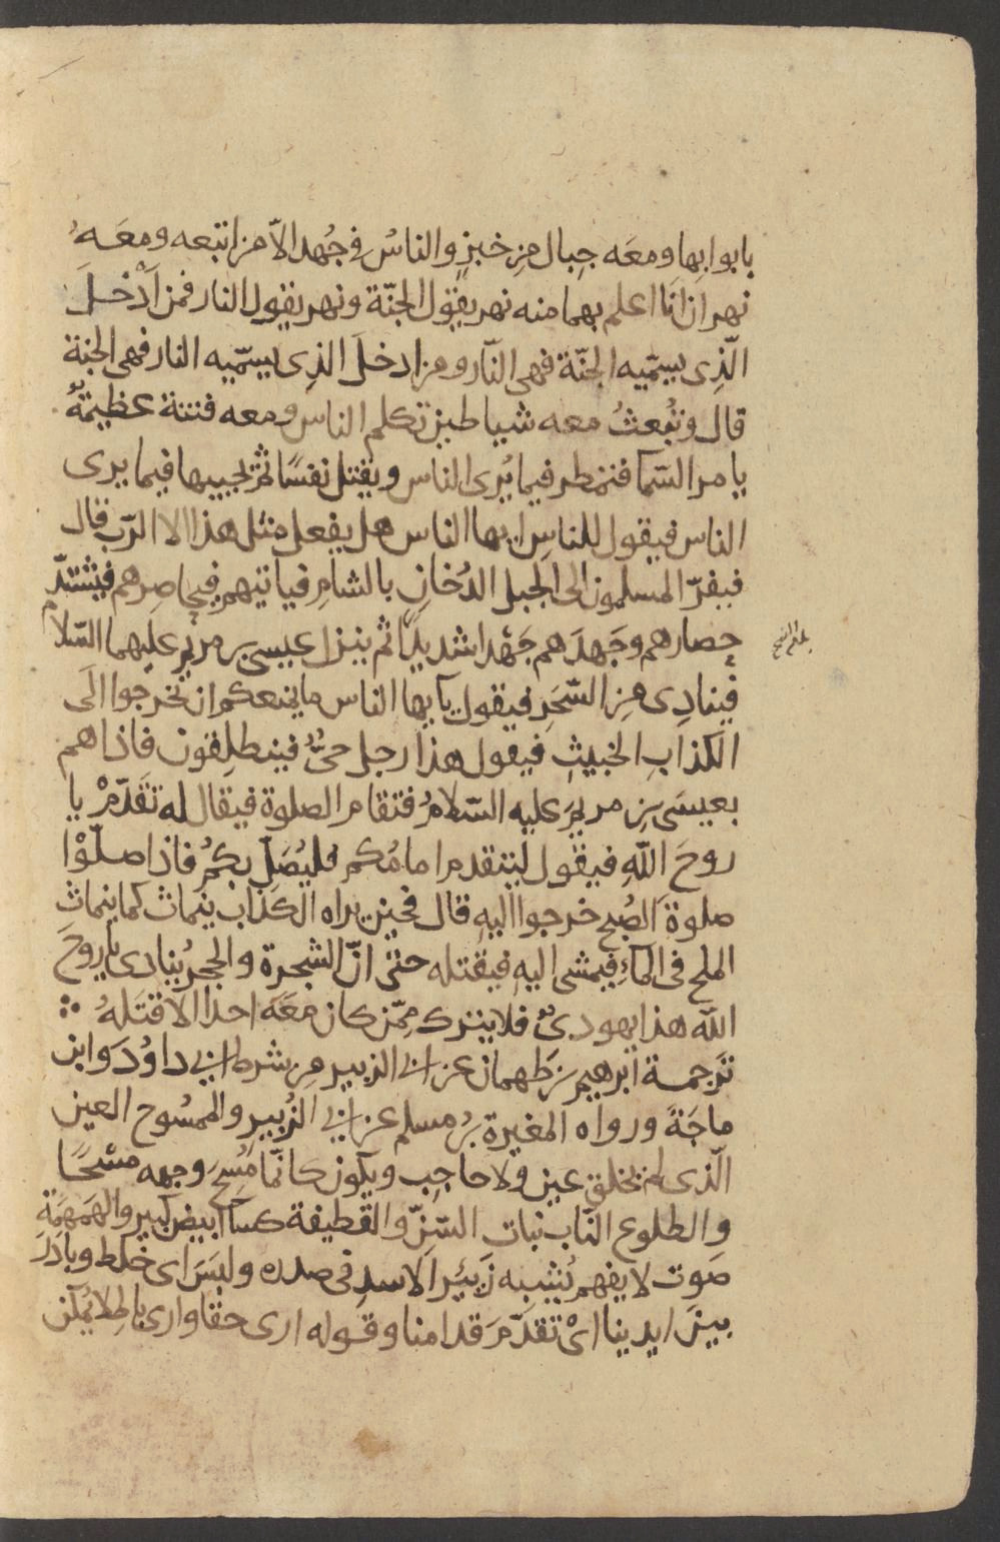 بابوابها ومعَه جِبال مِن خبزٍ والناسُ في جُهد الاّ من اتبعه ومعَهُ
نهران انا اعلم بهما منه نهر يقول الجنّة ونهر يقول النار فمن اُدْخلَ
الّذِى يسمّيه الجنّة فهى النّار ومن ادخلَ الذِى يسمّيه النار فهى الجنة
قال وتُبعثُ معه شياطين تكلم الناس ومعه فتنة عظيمةٌ
يامر السّما فتمطر فيما يُرى الناس ويقتل نفسًا ثم يحييها فيما يرى
الناس فيقول للناسِ ايها الناس هل يفعل مثل هذا الا الرّب قال
فيفرّ المسلمون الى الجبل الدُخانِ بالشامِ فياتيهم فيحاصِرهم فيشتدّ
حِصارهم وجَهدَهم جَهْدا شديدًا ثم ينزل عيسى بن مريم عليهما السّلام
فينادِى مِن السّحَرِ فيقول يآيها الناس ما يمنعكم ان تخرجوا الَى
الكذابِ الخبيثِ فيقول هذا رجل حىٌّ فينطلِقون فاذا هم
بعيسَى بن مريمَ عليه السّلامُ فتقام الصلوة فيقال له تقَدّمْ يا
روحَ اللهِ فيقول ليتقدم امامُكم فليُصَلِّ بكمُ فاذا صلّوْا
صلوة الصُبحِ خرجوا اليهِ قال فحين يراه الكذاب ينماث كما ينماث
الملح فى المآءِ فيمشى اليهِ فيقتله حتى انّ الشجرة والحجرُ ينادى يا روحَ
الله هذا يهودىٌ فلا يترك مِمّن كان معَهُ احدا الا قتَلهُ
ترجمة ابرهيم بن طَهمان عن ابى الزبير مِن شرط ابى داوُدَ وابن
ماجَةَ ورواه المغيرة بنُ مسلم عن ابى الزُبير والممسُوح العين
الّذى لم تخلق عين ولا حاجِب ويكون كانّما مُسِحَ وجهه مسْحًا
والطلوع النّاب نبات السّنّ والقطيفة كسآ ابيض كبير والهَمهَمَةِ
صَوت لا يفهم يُشبِه زَئير الاسدِ فى صدره ولبَسَ اى خلط وبادَرَ
بينَ ايدينا اىْ تقدّمَ قدامنا وقوله ارى حقا وارى باطِلا يُمكن